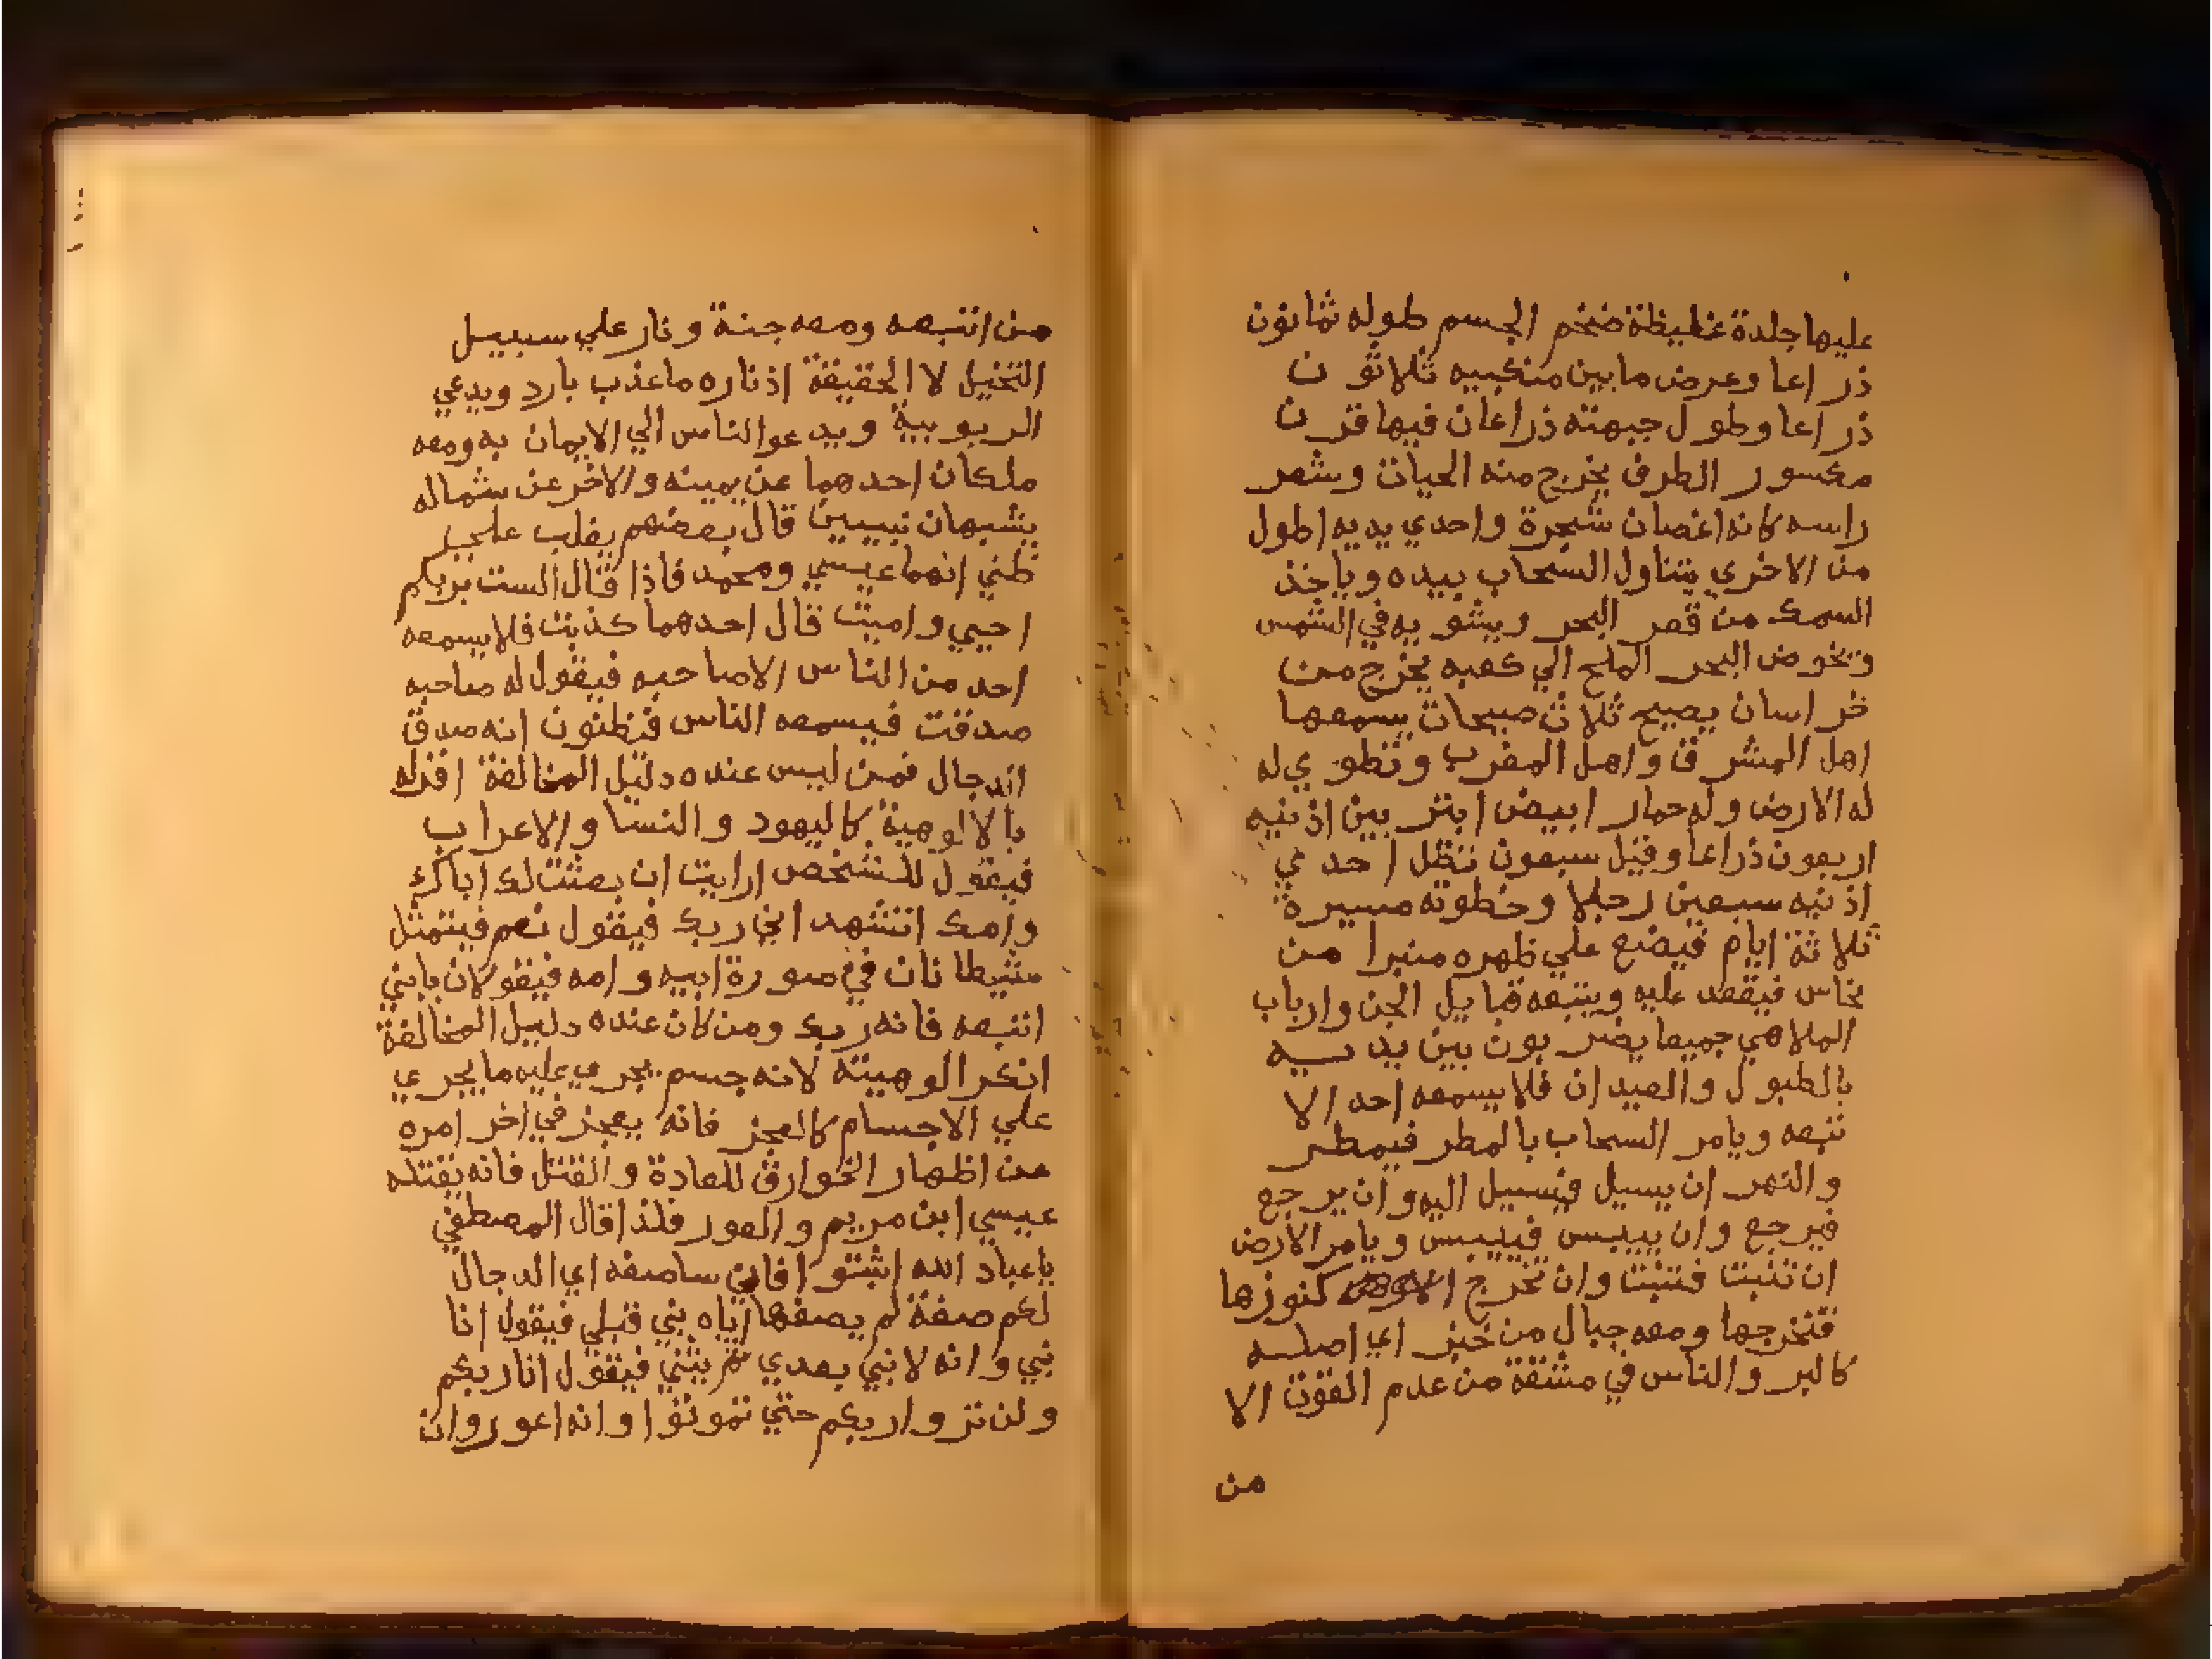 عليها جلدة غليظة ضخم الجسم طوله ثمانون
ذراعا وعرض ما بين منكبيه ثلاثون
ذراعا وطول جبهته ذراعان فيها قرن
مكسور الطرف يخرج منه الحيات وشعر
راسه كانه اغصان شجرة واحدي يديه اطول
من الاخري يتناول السحاب بيده وياخذ
السمك من قعر البحر ويشويه في الشمس
وتخوض البحر الملح الي كعبه يخرج من
خراسان يصيح ثلاث صيحات يسمعها
اهل المشرق واهل المغرب وتطوي له
له الارض وله حمار ابيض ابتر بين اذنيه
اربعون ذراعا وقيل سبعون تظل احدي
اذنيه سبعين رجلا وخطوته مسيرة
ثلاثة ايام فيضع علي ظهره منبرا من
نحاس فيقعد عليه ويتبعه قبايل الجن وارباب
الملاهي جميعا يضربون بين يديه
بالطبول والعيدان فلا يسمعه احد الا
تبعه ويامر السحاب بالمطر فيمطر
والنهر ان يسيل فيسيل اليه وان يرجع
فيرجع وان ييبس فييبس ويامر الارض
ان تنبت فتنبت وان تخرج كنوزها
فتخرجها ومعه جبال من خبز اي اصله
كالبر والناس في مشقة من عدم القوت الا
من
من اتبعه ومعه جنة ونار علي سبيل
التخيل لا الحقيقة اذ ناره ما عذب بارد ويدعي
الربوبية ويدعوا الناس الي الايمان به ومعه
ملكان احدهما عن يمينه والاخر عن شماله
يشبهان نبيين قال بعضهم يغلب علي
ظني انهما عيسي ومحمد فاذا قال الست بربكم
احيي واميت قال احدهما كذبت فلا يسمعه
احد من الناس الا صاحبه فيقول له صاحبه
صدقت فيسمعه الناس فيظنون انه صدق
الدجال فمن ليس عنده دليل المخالفة اقر له
بالالوهية كاليهود والنسا والاعراب
فيقول للشخص ارايت ان بعثت لك اباك
وامك اتشهد اني ربك فيقول نعم فيتمثل
شيطانان في صورة ابيه وامه فيقولان يا بني
اتبعه فانه ربك ومن كان عنده دليل المخالفة
انكر الوهيته لانه جسم يجري عليه ما يجري
علي الاجسام كالعجز فانه يعجز في اخر امره
عن اظهار الخوارق للعادة والقتل فانه يقتله
عيسي ابن مريم والعور فلذا قال المصطفي
يا عباد الله اثبتوا فاني ساصفه اي الدجال
لكم صفة لم يصفها اياه نبي قبلي فيقول انا
نبي وانه لا نبي بعدي ثم يثني فيقول انا ربكم
ولن تروا ربكم حتي تموتوا وانه اعور وان